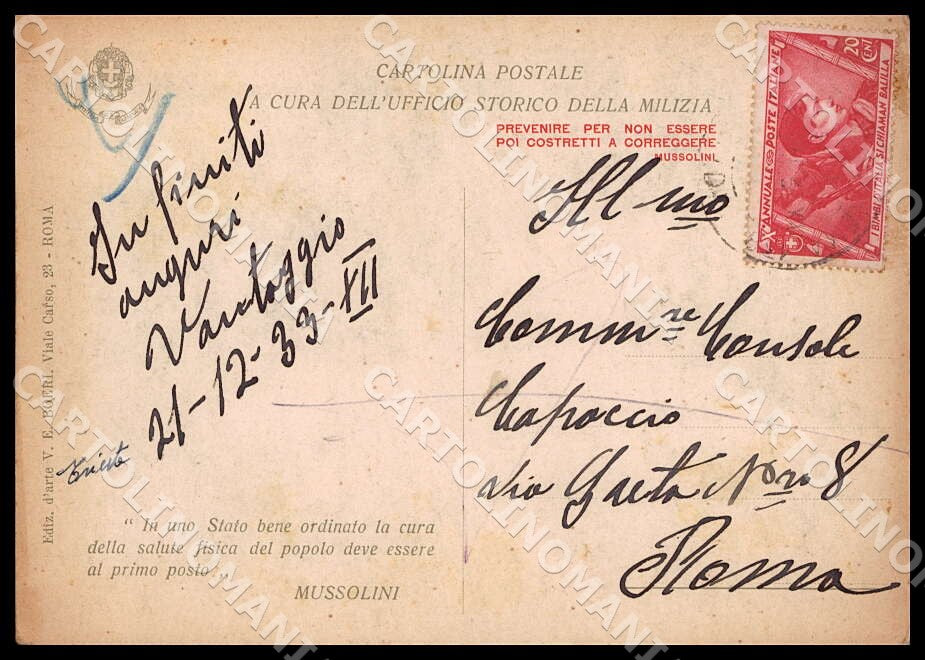 CARTOLINA POSTALE
A CURA DELL'UFFICIO STORICO DELLA MILIZIA
PREVENIRE PER NON ESSERE
POI COSTRETTI A CORREGGERE
MUSSOLINI
20
CENT
Xº ANNUALE POSTE ITALIANE
I BIMBI D'ITALIA SI CHIAMAN BALILLA
Infiniti
auguri
Vantaggio
21-12-33-XII
Trieste
Ill mo
Comm re Console
Capoccio
Via Gaeta Nro 8
Roma
" In uno Stato bene ordinato la cura
della salute fisica del popolo deve essere
al primo posto „
MUSSOLINI
Ediz. d'arte V. E. BOERI. Viale Carso, 23 - ROMA
CARTOLINOMANIA